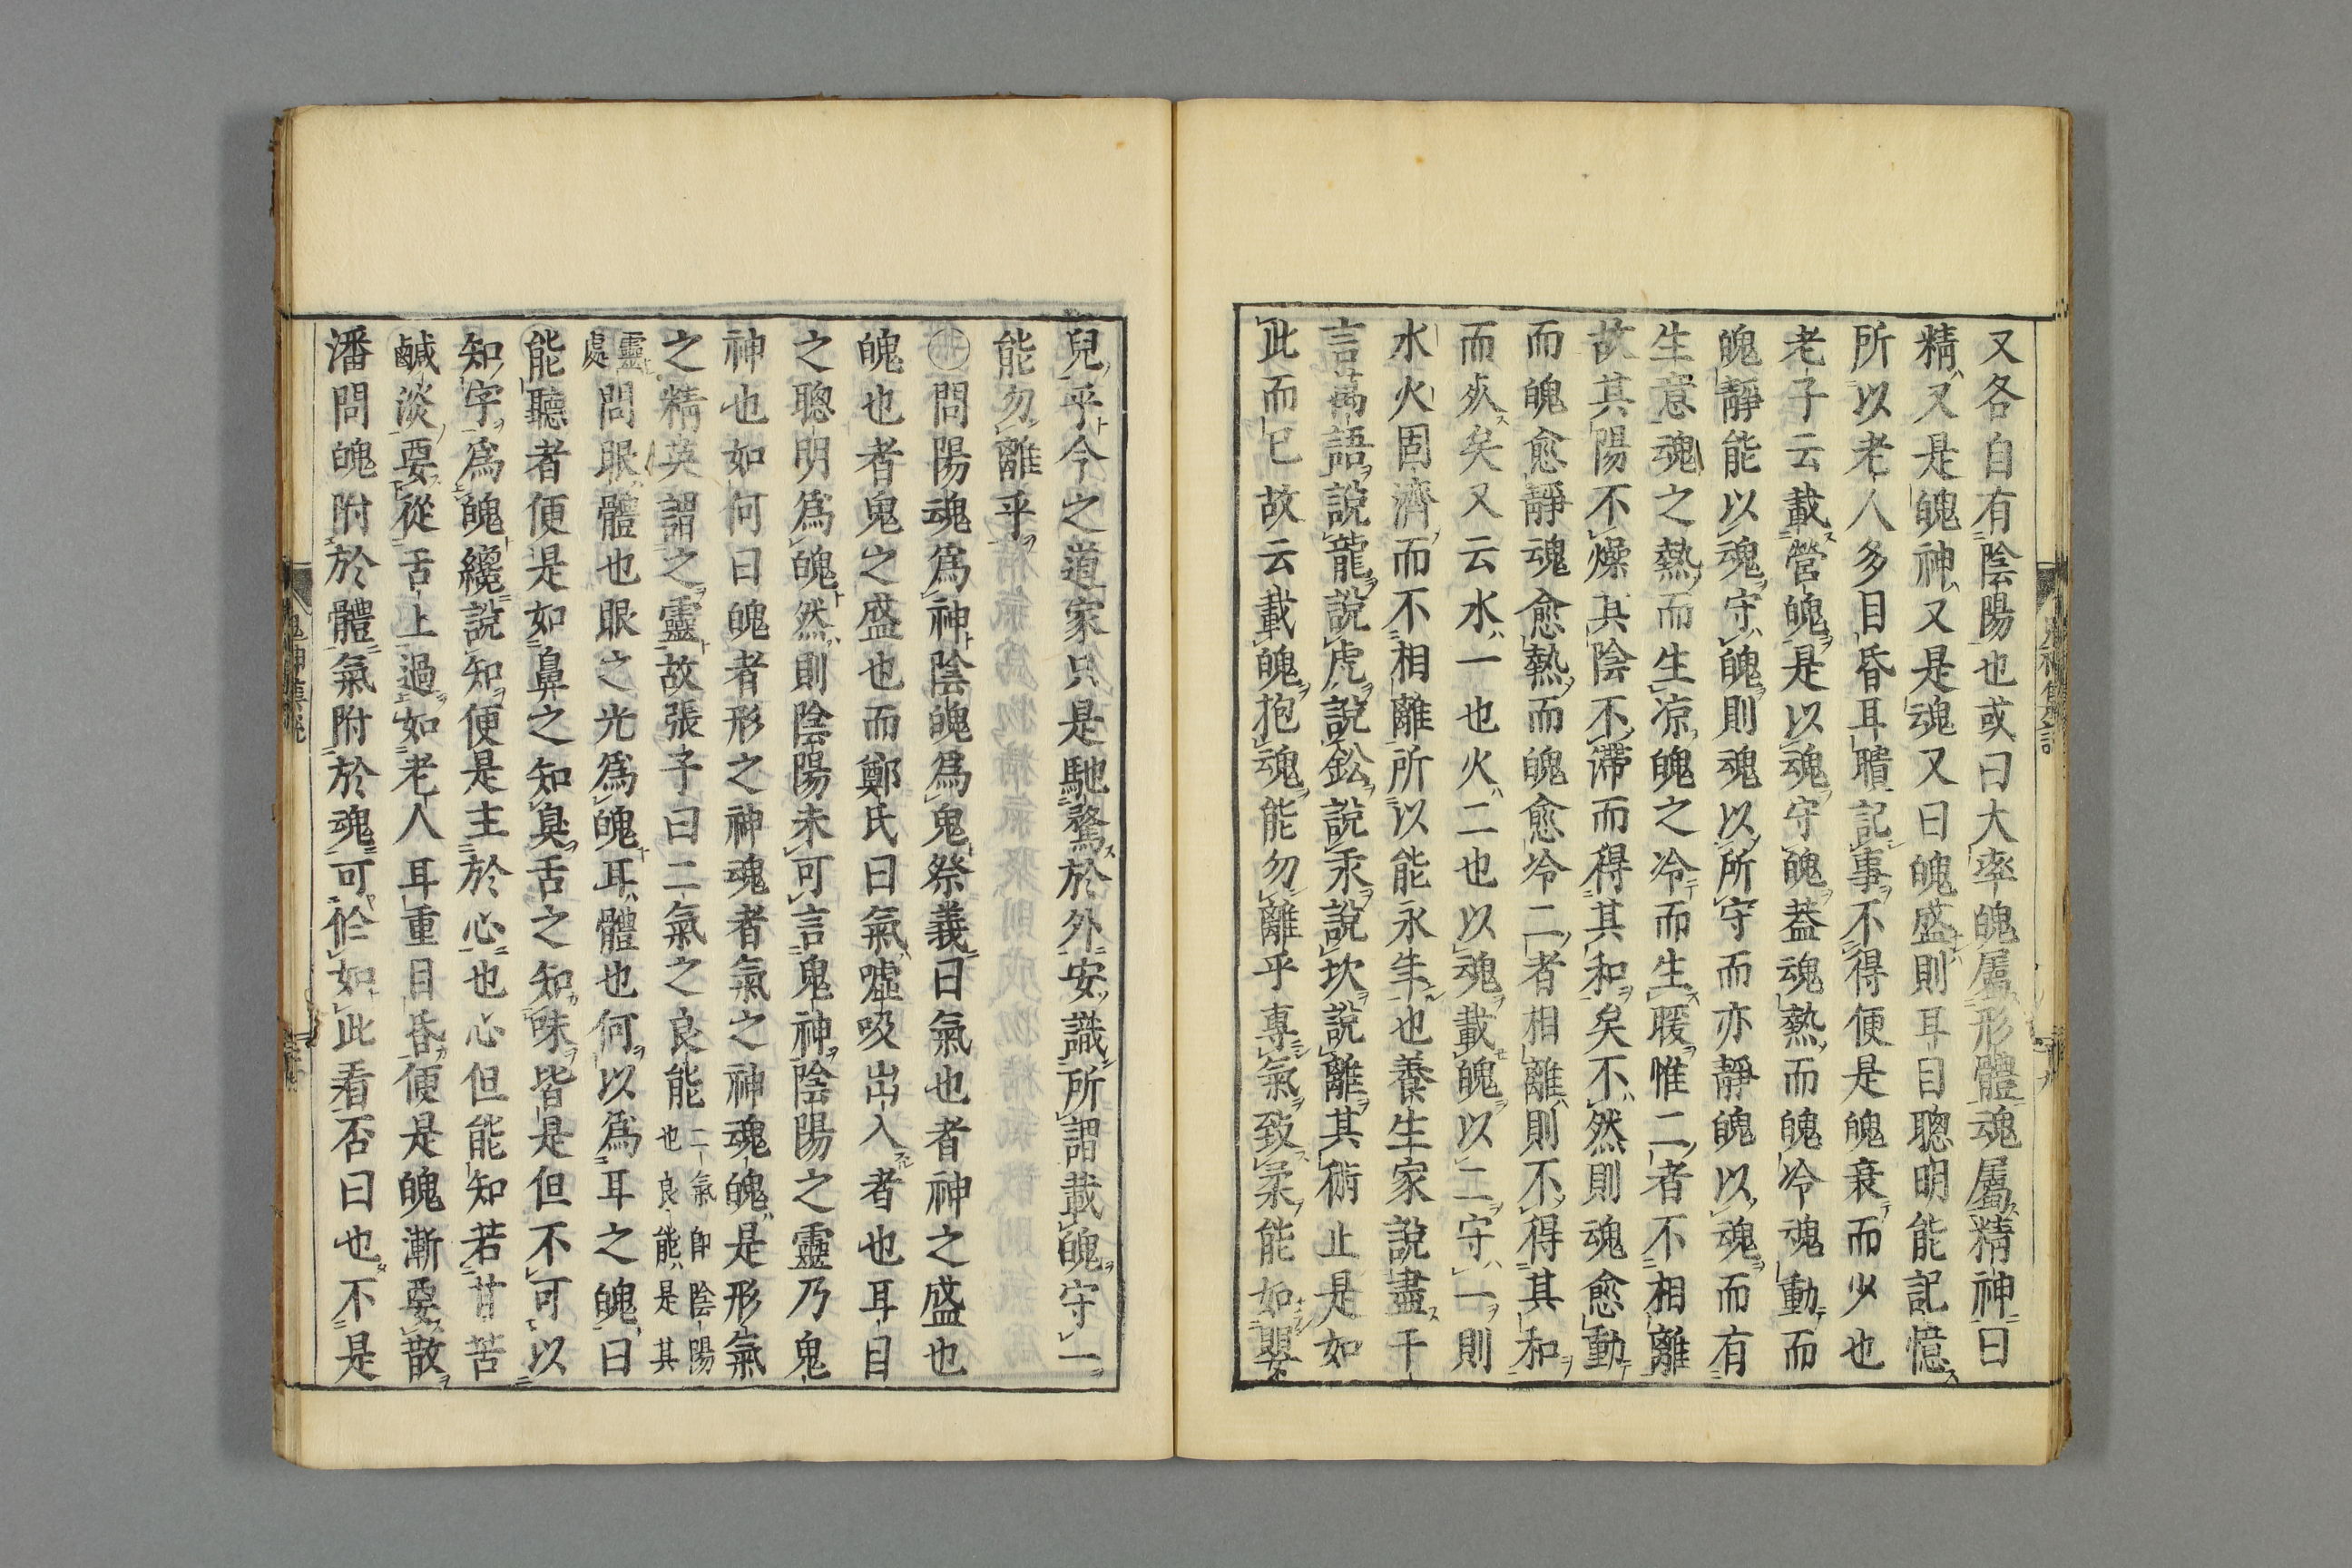 又各自有陰陽也或曰大率魄屬形體魂屬精神曰
精又是魄神又是魂又曰魄盛則耳目聰明能記憶
所以老人多目昏耳聵記事不得便是魄衰而少也
老子云載營魄是以魂守魄蓋魂熱而魄冷魂動而
魄靜能以魂守魄則魂以所守而亦靜魄以魂而有
生意魂之熱而生凉魄之冷而生暖惟二者不相離
故其陽不燥其陰不滯而得其和矣不然則魂愈動
而魄愈靜魂愈熱而魄愈冷二者相離則不得其和
而死矣又云水一也火二也以魂載魄以二守一則
水火固濟而不相離所以能永年也養生家說盡千
言萬語說龍說虎說鈆說汞說坎說離其術止是如
此而已故云載魄抱魂能勿離乎專氣致柔能如嬰
兒乎今之道家只是馳騖於外安識所謂載魄守一
能勿離乎
問陽魂爲神陰魄爲鬼祭義曰氣也者神之盛也
魄也者鬼之盛也而鄭氏曰氣噓吸出入者也耳目
之聰明爲魄然則陰陽未可言鬼神陰陽之靈乃鬼
神也如何曰魄者形之神魂者氣之神魂魄是形氣
之精英謂之靈故張子曰二氣之良能二氣卽陰陽也良能是其
靈處問眼體也眼之光爲魄耳體也何以爲耳之魄曰
能聽者便是如鼻之知臭舌之知味皆是但不可以
知字爲魄纔說知便是主於心也心但能知若甘苦
鹹淡要從舌上過如老人耳重目昏便是魄漸要散
潘問魄附於體氣附於魂可作如此看否曰也不是